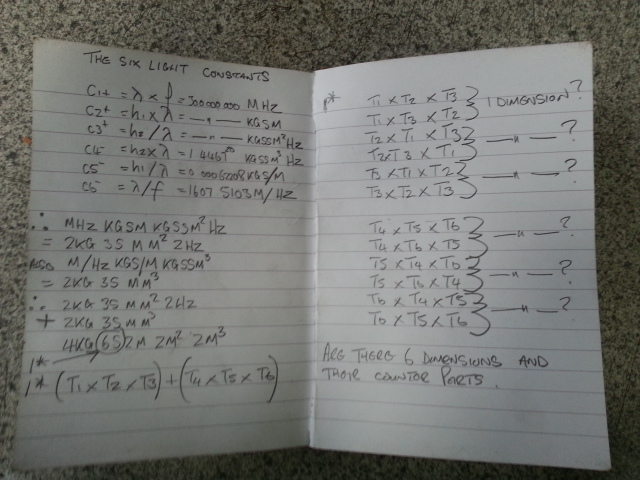 THE SIX LIGHT CONSTANTS
C1+ = λ x f = 300 000 000 MHz
C2+ = h1 x λ = — " — KGSM
C3+ = h2 / λ = — " — KGSSM²Hz
C4- = h2 x λ = KGSSM³Hz
C5- = h1 / λ = KGS/M
C6- = λ/f = 1607.5103 M/Hz
∴ MHz KGSM KGSSM² Hz
= 2KG 3S M M² 2Hz
ALSO M/Hz KGS/M KGSSM³
= 2KG 3S M M³
∴ 2KG 3S MM² 2Hz
+ 2KG 3S M M³
4KG (6S) 2M 2M² 2M³
1*
1* (T1 x T2 x T3) + (T4 x T5 x T6)
T1 x T2 x T3 } 1 DIMENSION?
T1 x T3 x T2
T2 x T1 x T3 } — " — ?
T2 x T3 x T1
T3 x T1 x T2 } — " — ?
T3 x T2 x T3
T4 x T5 x T6 } — " — ?
T4 x T6 x T5
T5 x T4 x T6 } — " — ?
T5 x T6 x T4
T6 x T4 x T5 } — " — ?
T6 x T5 x T6
ARE THERE 6 DIMENSIONS AND
THEIR COUNTOR PARTS.